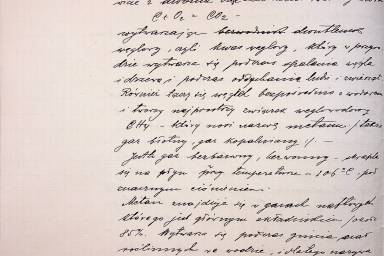 C + O₂ = CO₂ -
wytwarzając bezwodnik dwutlenek
węglowy, czyli kwas węglowy, który w przyro
dzie wytwarza się podczas spalania węgla
i drzewa, i podczas oddychania ludzi i zwierząt.
Również łączy się węgiel bezpośrednio z wodorem
i tworzy najprostszy związek węglowodorowy
CH₄ - który nosi nazwę metanu, / także
gaz błotny, gaz kopalniany / . -
Jest gaz bezbarwny, bezwonny -
się na płyn przy temperaturze - 106°C pod
znacznym ciśnieniem.
Metan znajduje się w gazach naftowych
którego jest głównym składnikiem /
85%. Wytwarza się podczas gnicia ciał
roślinnych w wodzie, i dlatego nazywa